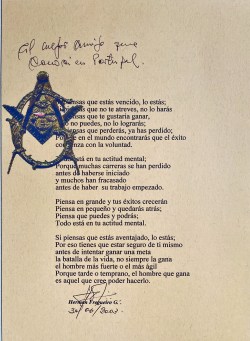 Al mejor amigo que
conocí en Portugal.
piensas que estás vencido, lo estás;
piensas que no te atreves, no lo harás
piensas que te gustaría ganar,
no puedes, no lo lograrás;
piensas que perderás, ya has perdido;
que en el mundo encontrarás que el éxito
con la voluntad.
está en tu actitud mental;
Porque muchas carreras se han perdido
antes de haberse iniciado
y muchos han fracasado
antes de haber su trabajo empezado.
Piensa en grande y tus éxitos crecerán
Piensa en pequeño y quedarás atrás;
Piensa que puedes y podrás;
Todo está en tu actitud mental.
Si piensas que estás aventajado, lo estás;
Por eso tienes que estar seguro de ti mismo
antes de intentar ganar una meta
la batalla de la vida, no siempre la gana
el hombre más fuerte o el más ágil
Porque tarde o temprano, el hombre que gana
es aquel que cree poder hacerlo.
Hernán G.
30/06/2003